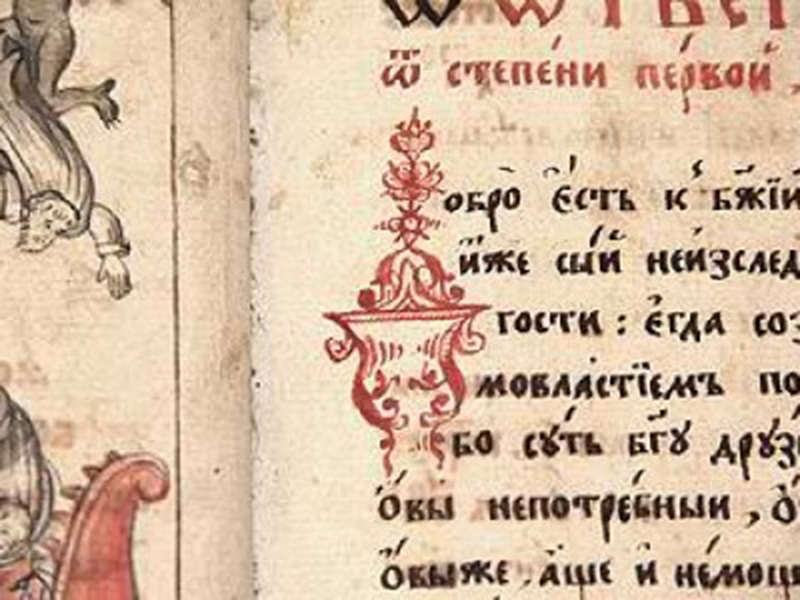 ѿ степе́ни пе́рвой
обро̀ є҆́сть к̾ бж҃їи
и҆́же сы́й неизслед
гости : є҆гда̀ соз
мовла́стїемъ по
бо су́ть бг҃ꙋ дрꙋ́з
ѻ҆́вы непотре́бныи , ѻ҆́
ѻ҆́выже . а҆́ще и҆ не́мощ